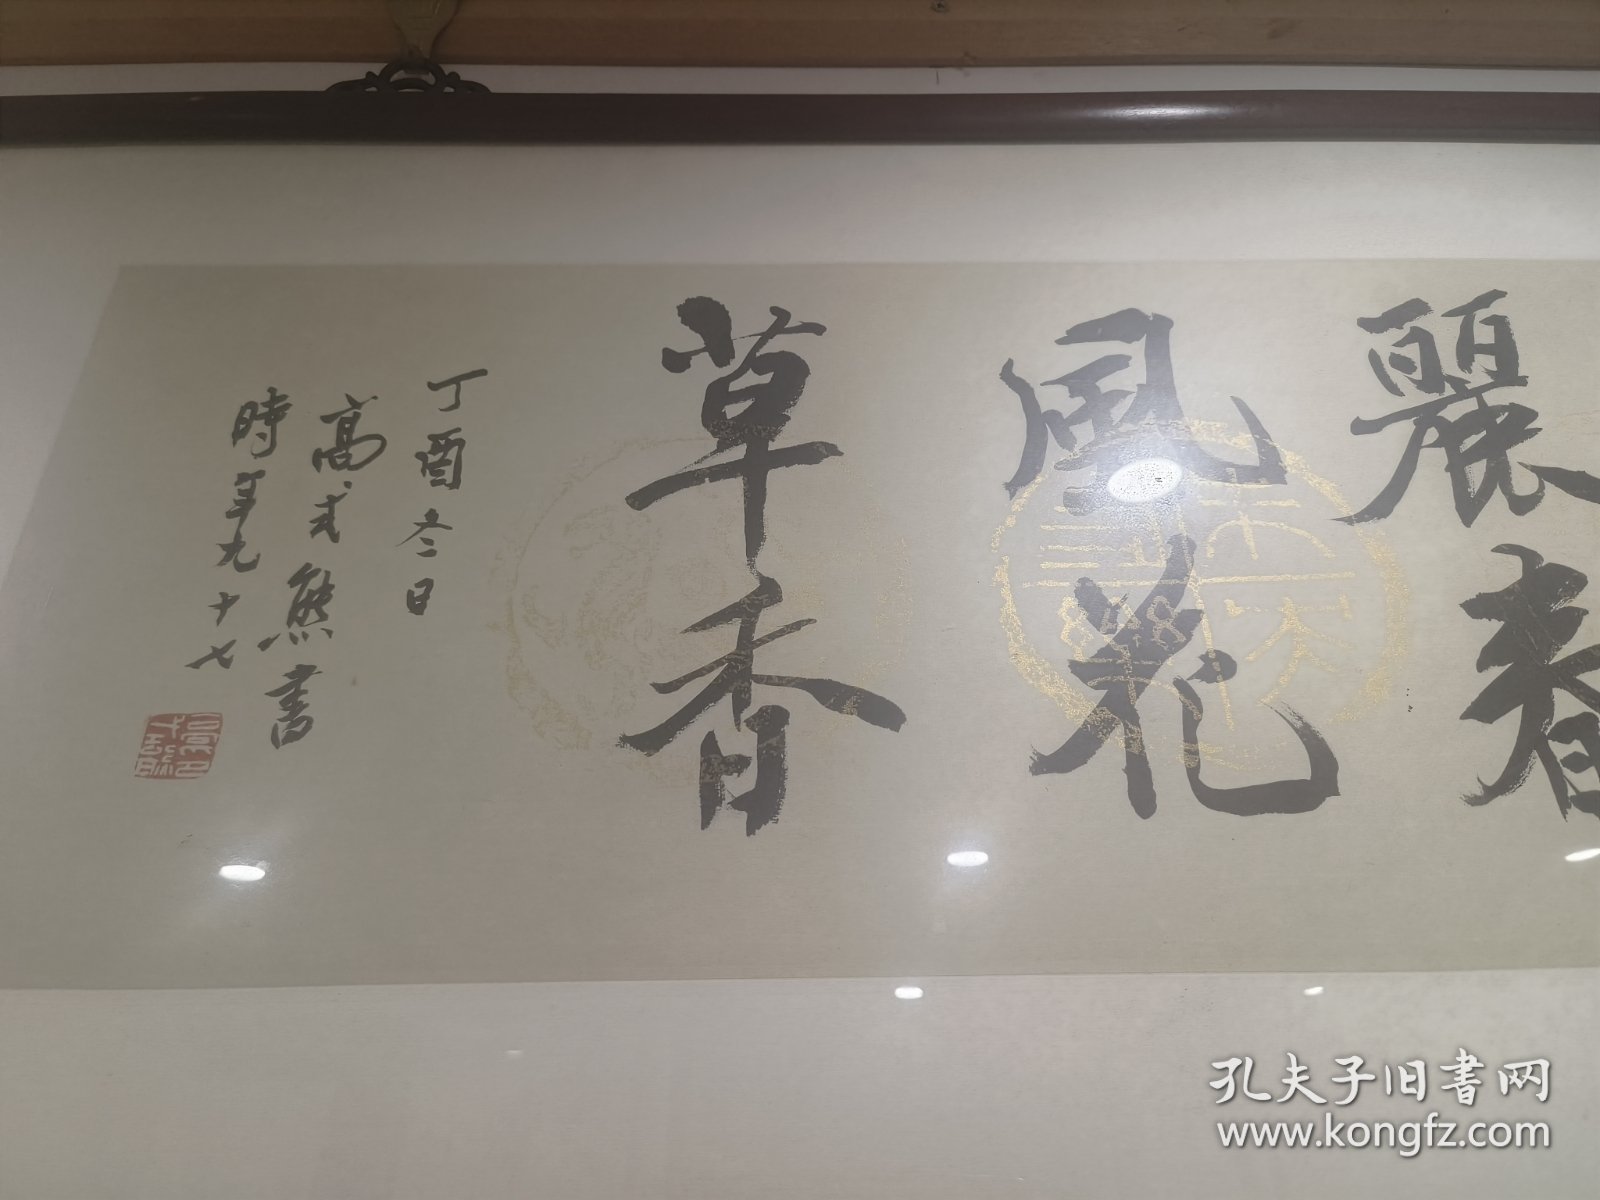 麗春
風花
草香
丁酉冬日
高式熊書
時年九十七
孔夫子旧书网
www.kongfz.com